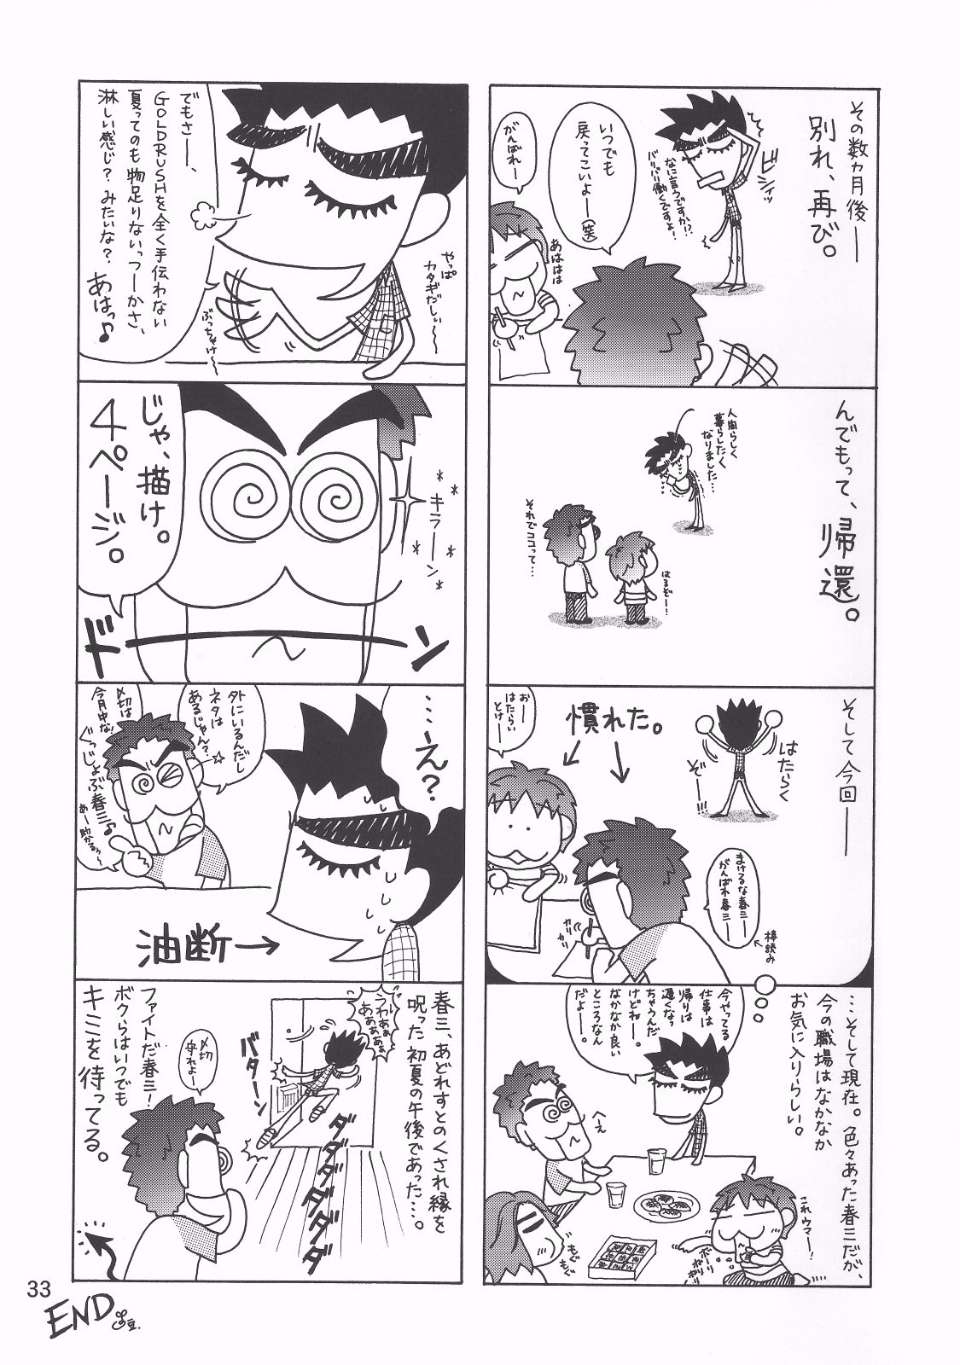 その数ヵ月後──
別れ、再び。
ビシィッ
なに言うですか!?
バリバリ働くですよ!
いつでも
戻ってこいよー(笑)
がんばれー
あははは
んでもって、
帰還。
人間らしく
暮らしたく
なりました…
それでココって…
はるぞー!
そして今回──
はたらく
ぞー!!
慣れた。
おー
はたらい
とけー
まけるな春三ー
がんばれ春三ー
棒読み
カリカリ
…そして現在。色々あった春三だが、
今の職場はなかなか
お気に入りらしい。
今やってる
仕事は
帰りは
遅くなっ
ちゃうんだ
けどねー。
なかなか良い
ところなん
だよー。
へえ
これウマー!
ボーリ
ボリボリ
もぐ
もぐ
でもさー、
GOLDRUSHを全く手伝わない
夏ってのも物足りないっつーかさ、
淋しい感じ?みたいな?
あはっ♪
やっぱ
カタギだしぃ〜
ぶっちゃけ〜
じゃ、描け。
4ページ。
キラーン
ドーン
……え?
外にいるんだし
ネタは
あるじゃん?☆
〆切は
今月中な!
ぐっじょぶ春三♪
あー助かるぅ〜
油断→
春三、あどれすとのくされ縁を
呪った初夏の午後であった…。
うわぁぁ
あああぁぁ
バターン
ダダダダダダ
〆切
守れよー
ファイトだ春三!
ボクらはいつでも
キミを待ってる。
33
END